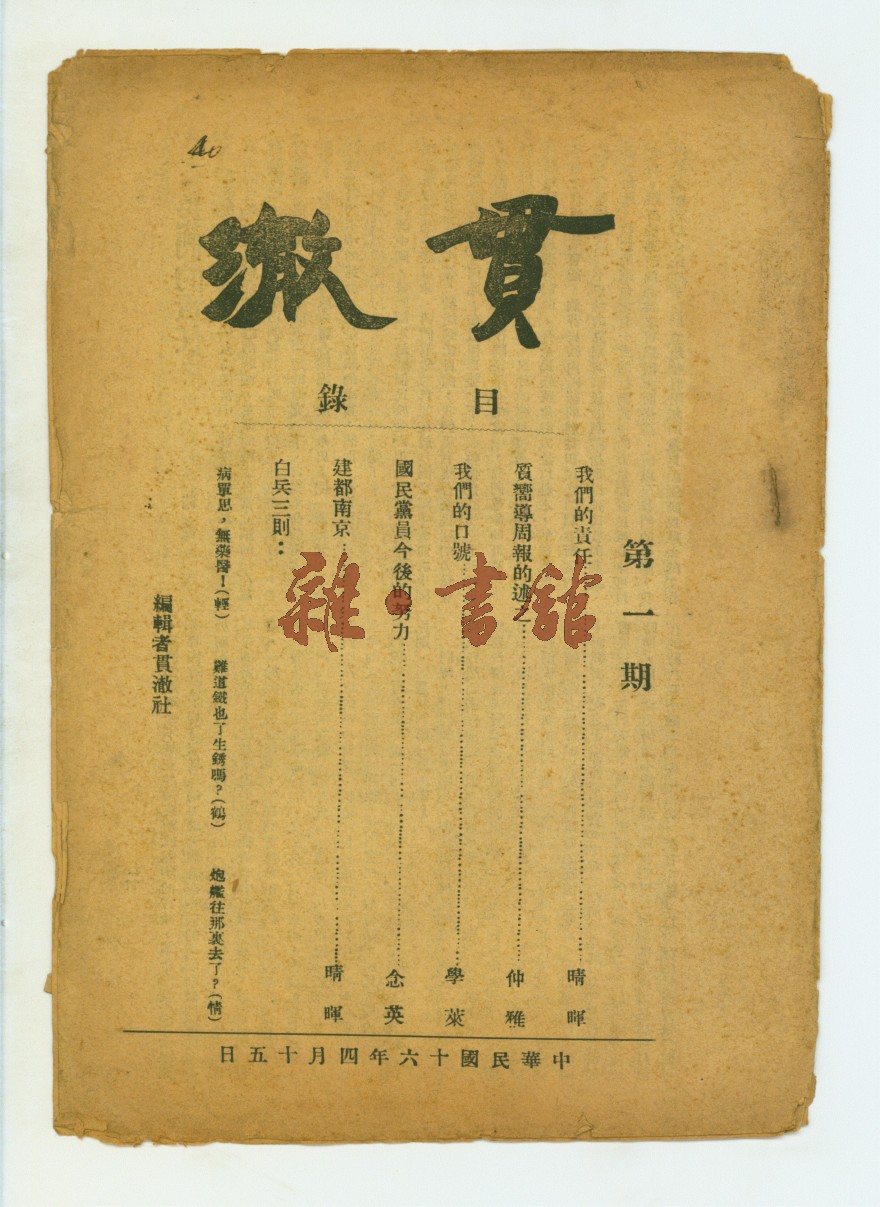 40
貫澈
目錄
第一期
我們的責任 晴暉
質嚮導周報的述之 仲雅
我們的口號 學萊
國民黨員今後的努力 念英
建都南京 晴暉
白兵三則：
病單思，無藥醫！(輕)
難道鐵也了生銹嗎？(鶴)
炮艦往那裏去了？(情)
編輯者貫澈社
中華民國十六年四月十五日
雜·書舘